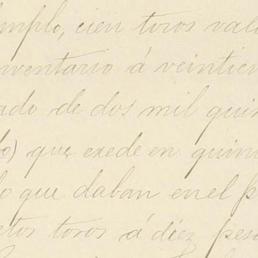 emplo, cien toros valu
nventario á veintici
ado de dos mil quin
o) que exede en quin
lo que daban en el p
etos toros á diez pes